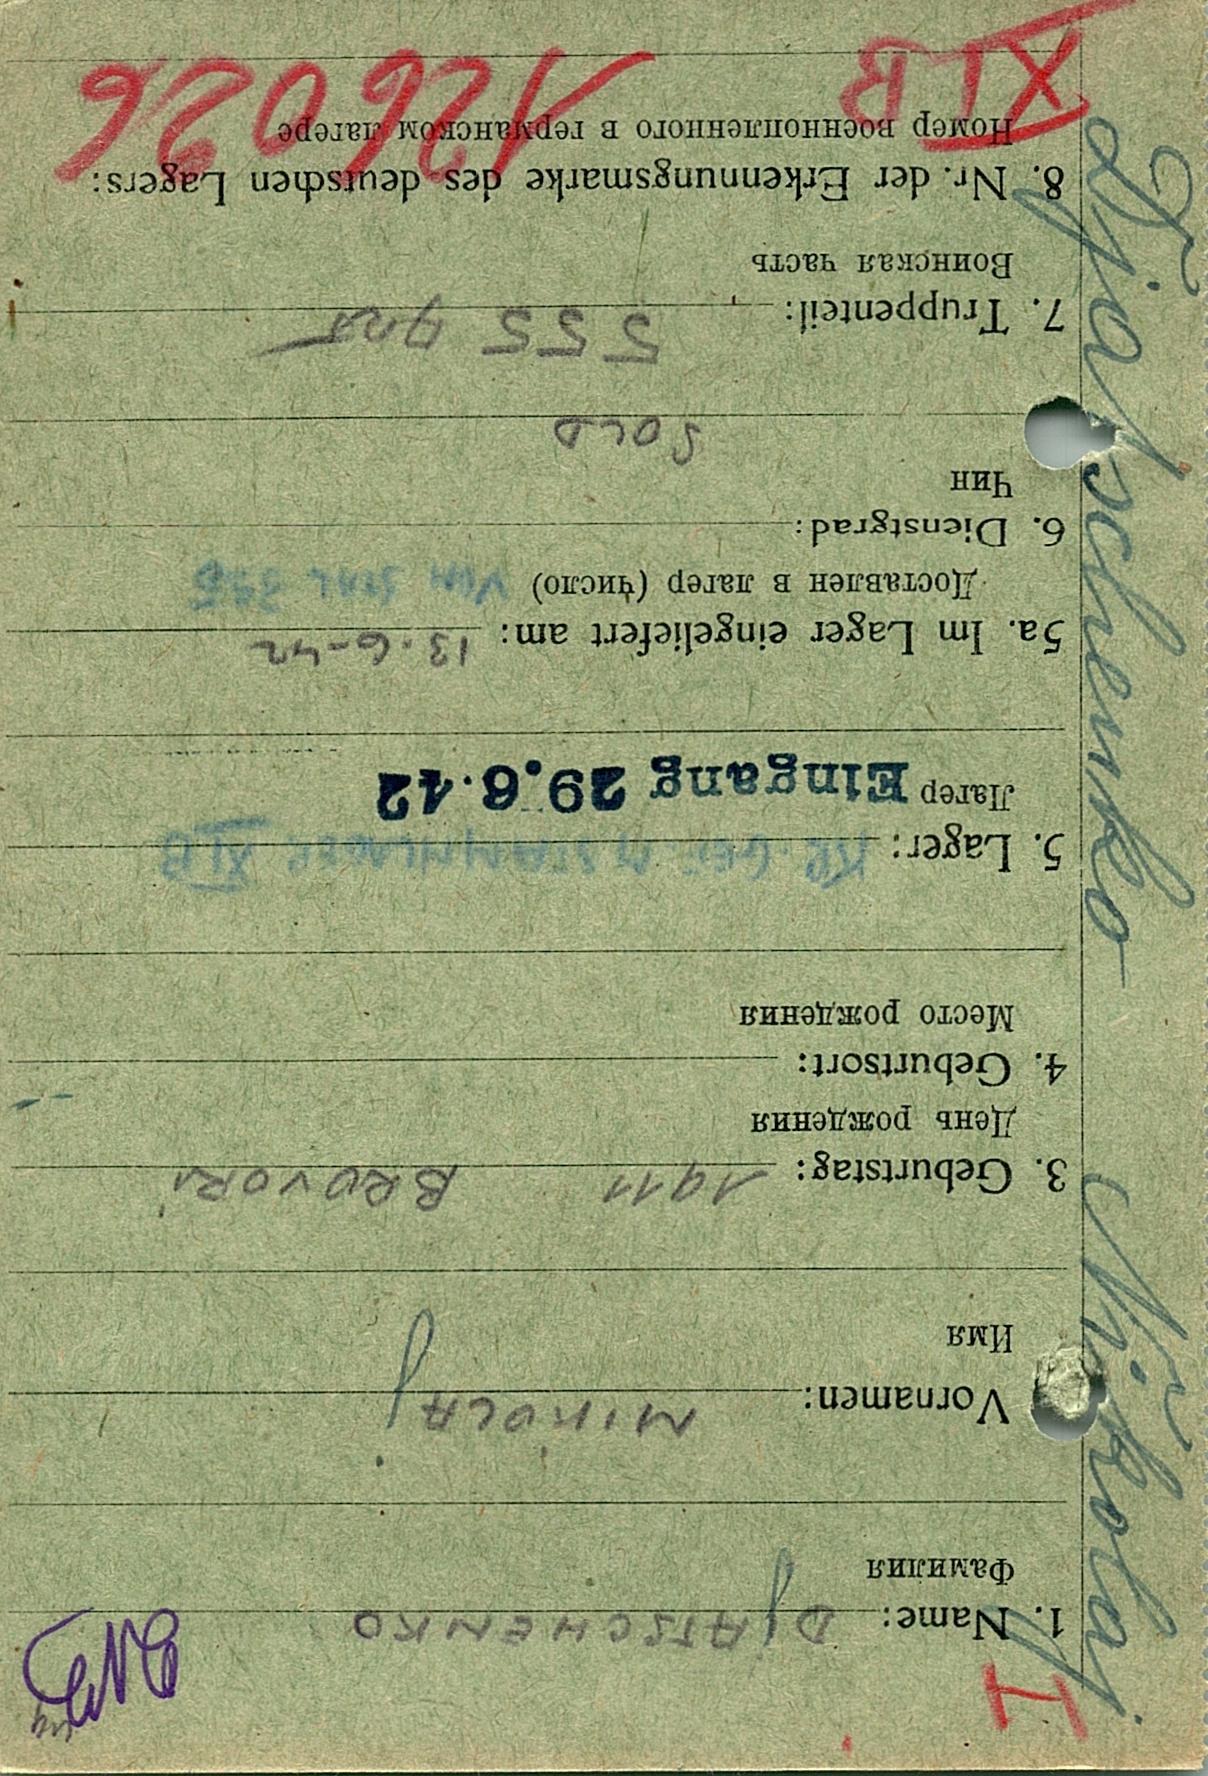 I
1. Name: DJATSCHENKO
Фамилия
Vornamen: MIKOLAJ
Имя
3. Geburtstag: 1911 BROVORI
День рождения
4. Geburtsort:
Место рождения
5. Lager: KR. GEF. M. STAMMLAGER XI B
Лагер Eingang 29.6.42
5a. Im Lager eingeliefert am: 13.6-42
Доставлен в лагер (число) VOM STAL
6. Dienstgrad:
Чин
SOLD
7. Truppenteil: 555
Воинская часть
8. Nr. der Erkennungsmarke des deutschen Lagers:
Номер военнопленного в германском лагере
XI B 126026
Djatschenko Nikolaj